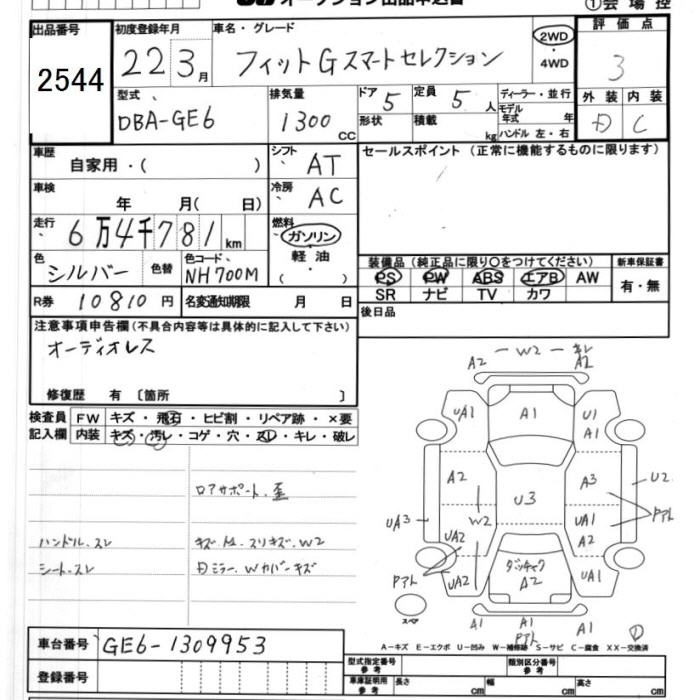 オークション出品申込書
①会場控
出品番号 2544
初度登録年月 22 3月
車名・グレード フィットGスマートセレクション
2WD
4WD
評価点 3
外装 内装 C
型式 DBA-GE6
排気量 1300 CC
ドア 5
形状
定員 5人
積載 kg
ディーラー・並行
モデル年式 年
ハンドル 左・右
車歴 自家用・( )
シフト AT
セールスポイント (正常に機能するものに限ります)
車検 年 月( 日)
冷房 AC
走行 6万4千781km
燃料 ガソリン
軽油
・
( )
色 シルバー 色替
色コード NH700M
装備品 (純正品に限り○をつけてください) 新車保証書
PS PW ABS エアB AW
SR ナビ TV カワ
有・無
R券 10810円
名変通知期限 月 日
後日品
注意事項申告欄(不具合内容等は具体的に記入して下さい)
オーディオレス
修復歴 有 〔箇所 〕
検査員記入欄
FW キズ・飛石・ヒビ割・リペア跡・×要
内装 キズ・汚レ・コゲ・穴・スレ・キレ・破レ
ロアサポート.歪
ハンドル.スレ
シート.スレ
スリキズ.W2
ミラー.Wカバーキズ
A2 W2 キレ A2
UA1 A1 U1 A1
A2 A3 U2
U3
UA3 W2 UA1 アト
UA2 A2
アト UA2 A2 UA1
スペア
A1 A1 A1
A-キズ E-エクボ U-凹み W-補修跡 S-サビ C-腐食 XX-交換済
車台番号 GE6-1309953
登録番号
型式指定番号参考
類別区分番号参考
車庫証明用参考
長さ cm
幅 cm
高さ cm